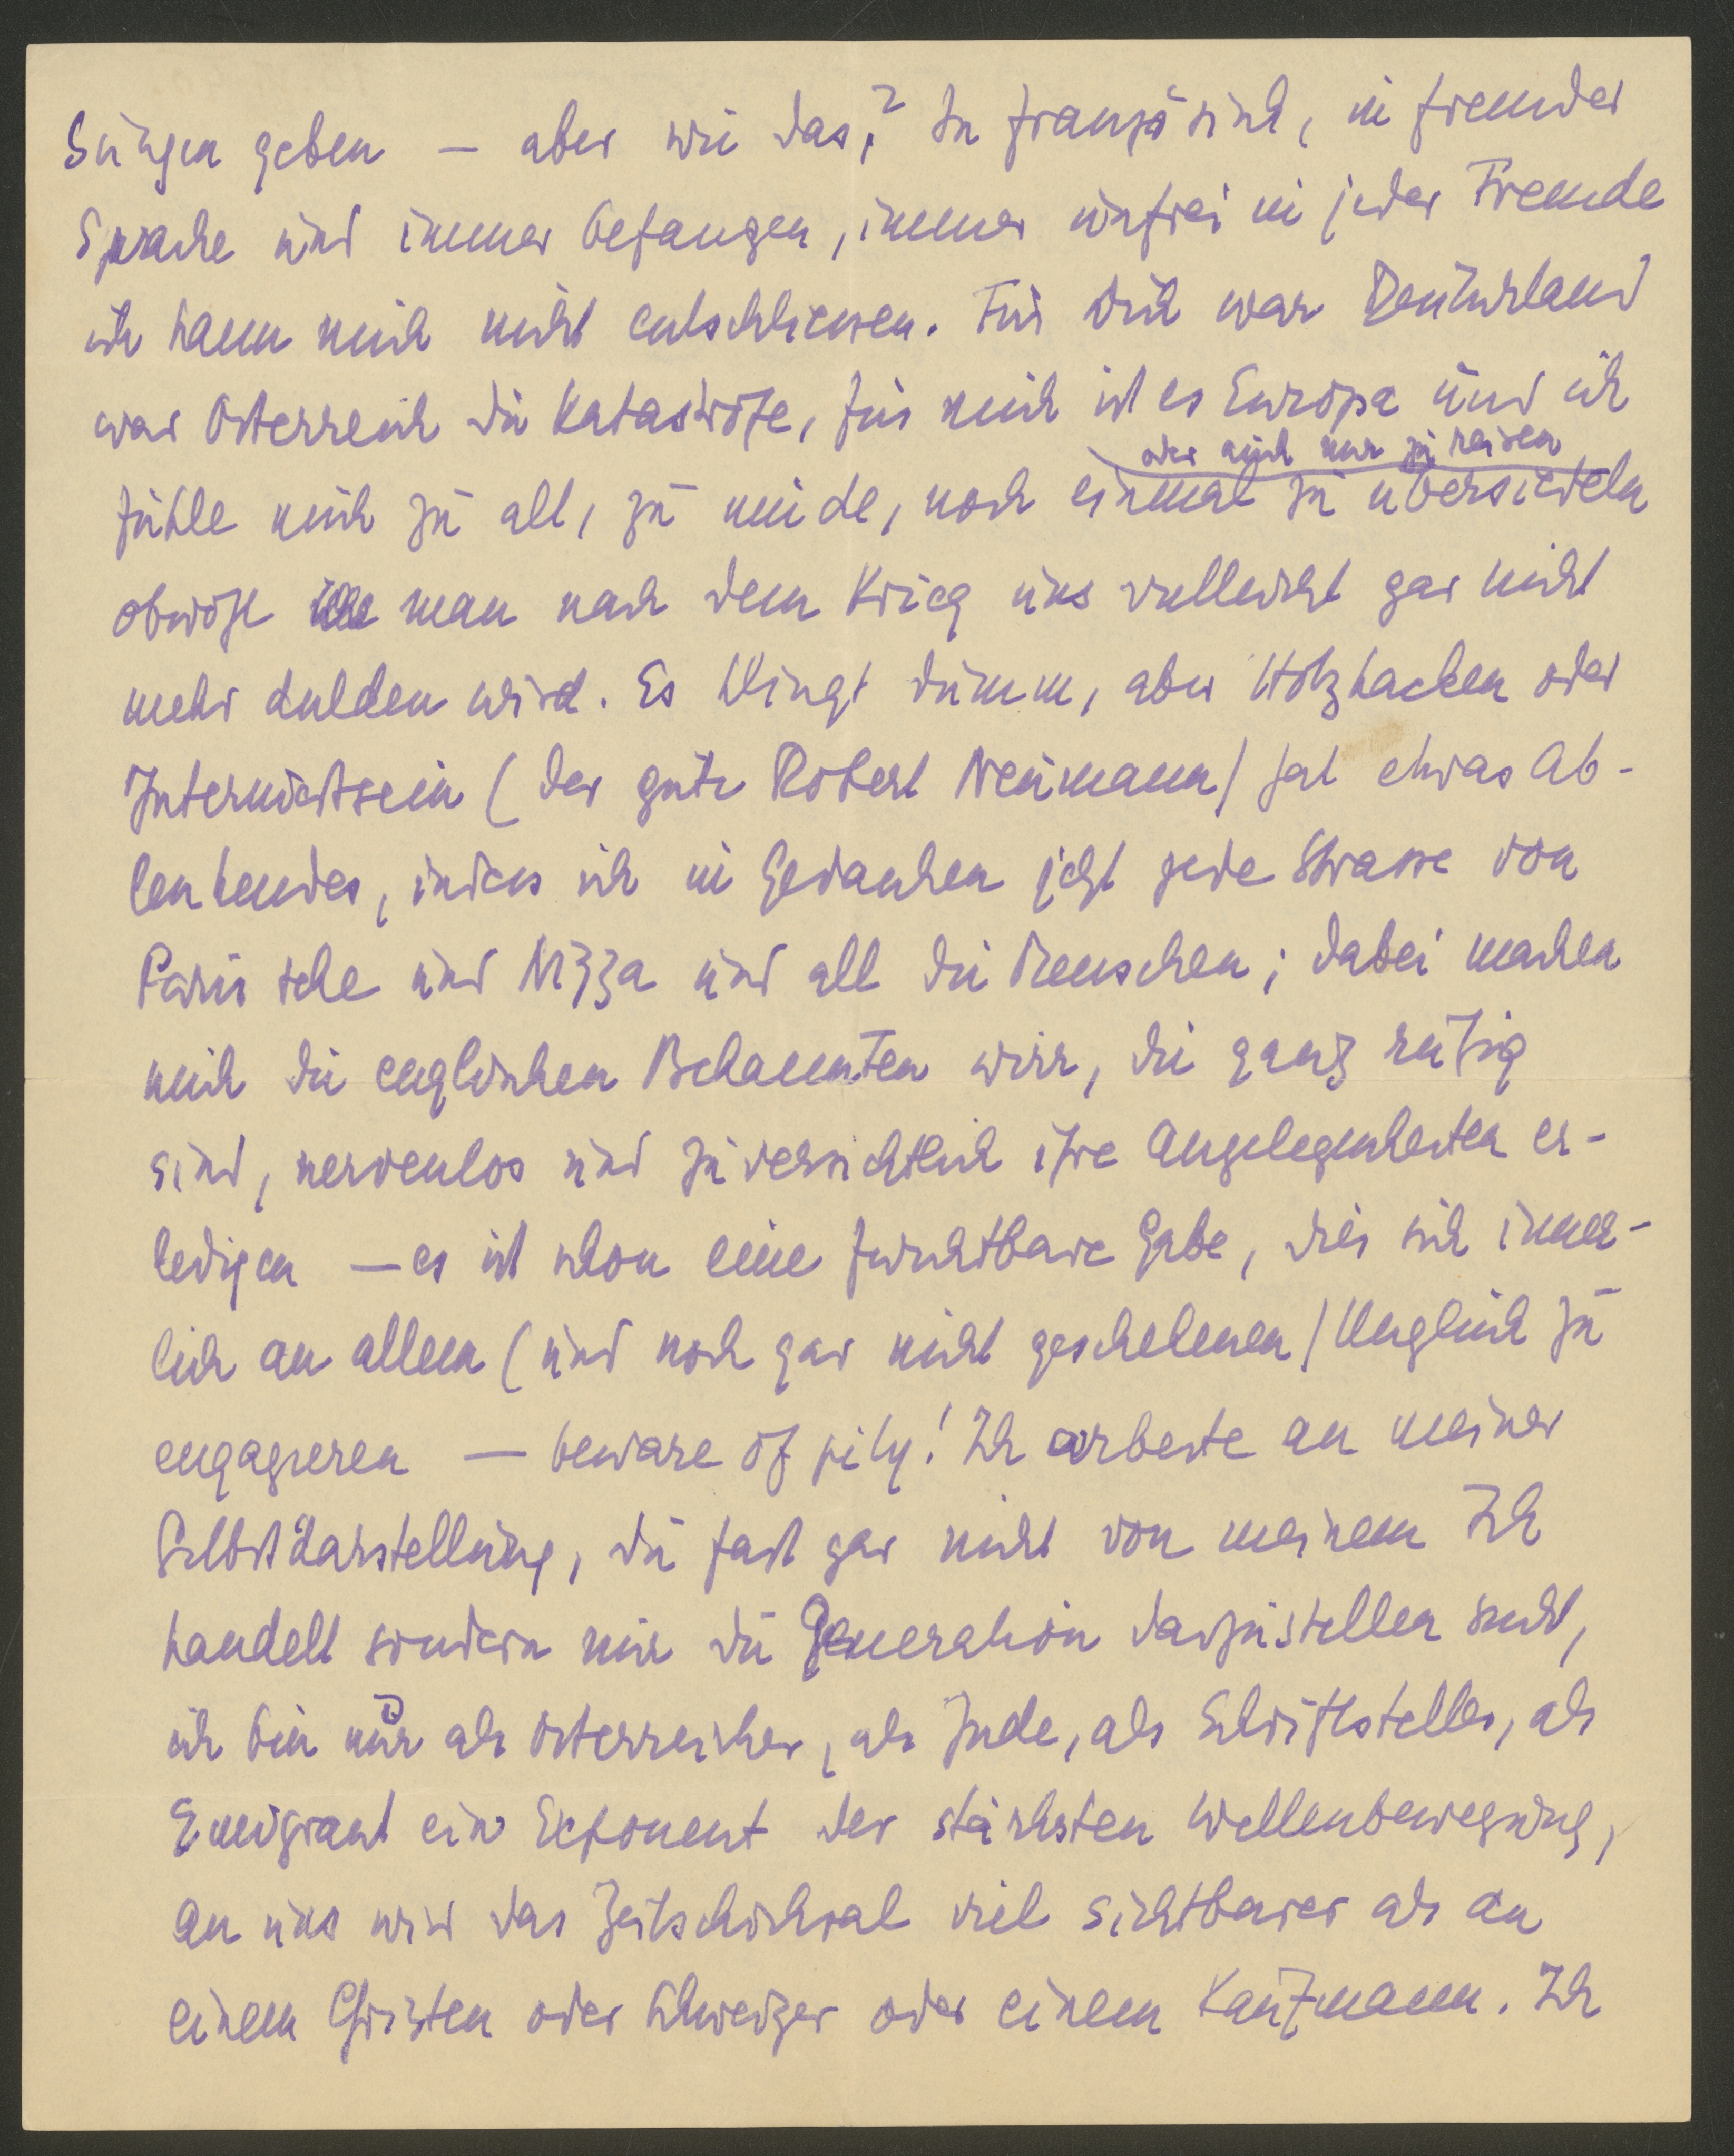 Dingen geben — aber wie das? In französisch, in fremder
Sprache und immer befangen, immer unfrei in jeder Fremde
ich kann mich nicht entschliessen. Für Dich war Deutschland
war Österreich die Katastrofe, für mich ist es Europa und ich
oder auch nur zu reisen
fühle mich zu alt, zu müde, noch einmal zu übersiedeln
obwohl man nach dem Krieg uns vielleicht gar nicht
mehr dulden wird. Es klingt dumm, aber Holzhacken oder
Interniertsein (der gute Robert Neumann) hat etwas Ab-
lenkendes, indess ich in Gedanken jetzt jede Strasse von
Paris sehe und Nizza und all die Menschen; dabei machen
mich die englischen Bekannten wirr, die ganz ruhig
sind, nervenlos und zuversichtlich ihre Angelegenheiten er-
ledigen — es ist schon eine furchtbare Gabe, dies sich inner-
lich an allem (und noch gar nicht geschehenen) Unglück zu
engagieren — beware of pity! Ich arbeite an meiner
Selbstdarstellung, die fast gar nicht von meinem Ich
handelt sondern nur die Generation darzustellen sucht,
ich bin nur als Österreicher, als Jude, als Schriftsteller, als
Emigrant ein Exponent der stärksten Wellenbewegung,
an uns wird das Zeitschicksal viel sichtbarer als an
einem Christen oder Schweizer oder einem Kaufmann. Ich